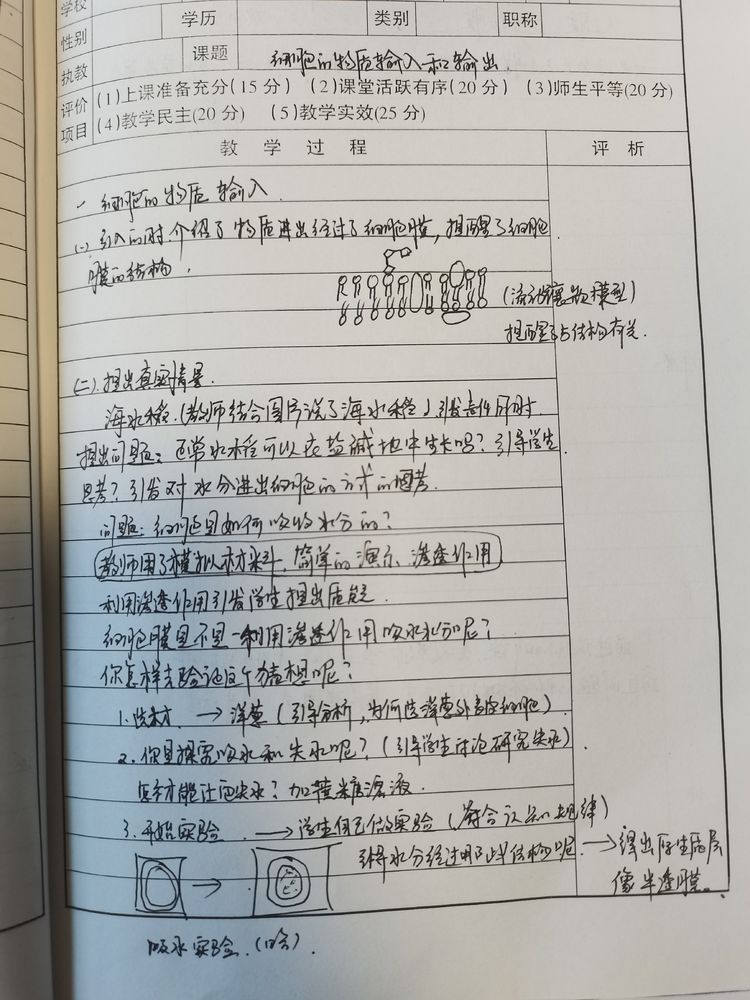 学校
学历 类别 职称
性别
课题 细胞的物质输入和输出
执教
评价项目 (1)上课准备充分(15 分) (2)课堂活跃有序(20 分) (3)师生平等(20 分)
(4)教学民主(20 分) (5)教学实效(25 分)
教 学 过 程 评 析
一 细胞的物质输入
(一) 引入的时介绍了物质进出经过了细胞膜,提醒了细胞
膜的结构,
(流动镶嵌模型)
提醒了与结构有关.
(二) 提出真实情景.
海水稻.(教师结合图片说了海水稻)引发
提出问题:正常水稻可以在盐碱地中生长吗?引导学生
思考?引发对水分进出细胞的方式的思考.
问题:细胞是如何吸收水分的?
教师用了模拟材料,简单的演示 渗透作用
利用渗透作用引发学生提出质疑.
细胞膜是不是利用渗透作用吸水水分呢?
你怎样去验证这个猜想呢?
1.选材 → 洋葱(引导分析,为何选洋葱外表皮细胞)
2.你是探究吸水和失水呢?(引导学生讨论研究失水)
怎才能让它失水?加蔗糖溶液
3.开始实验 → 学生自己做实验(符合认知规律)
水分经过了哪些结构呢 → 得出原生质层
像半透膜。
吸水实验.(略).